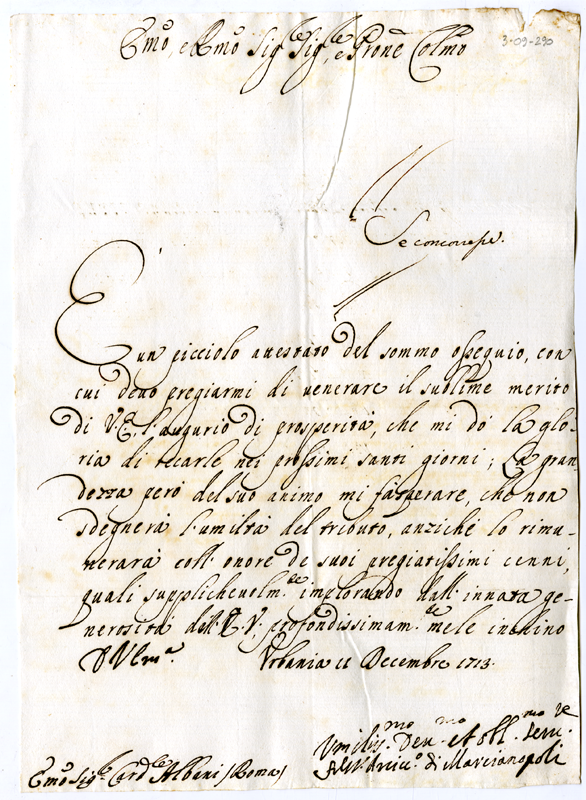 Emo, e Rmo Sigre Sigre, e Prone Colmo
3-09-290
Se concorresse.
È un picciolo attestato del sommo ossequio, con
cui devo pregiarmi di venerare il sublime merito
di V. E. l'augurio di prosperità, che mi dò la glo-
ria di recarle nei prossimi santi giorni; La gran
dezza però del suo animo mi fà sperare, che non
sdegnerà l'umiltà del tributo, anziche lo rimu-
nerarà coll'onore de suoi pregiatissimi cenni,
quali supplichevolmte implorando dall'innata ge-
nerosità dell'E. V., profondissimamte mele inchino
D V Ema. Urbania 11 Decembre 1713.
Umilismo Devmo et obblmo Serve
Emo Sigre Cardle Albani (Roma)
di Marcianopoli